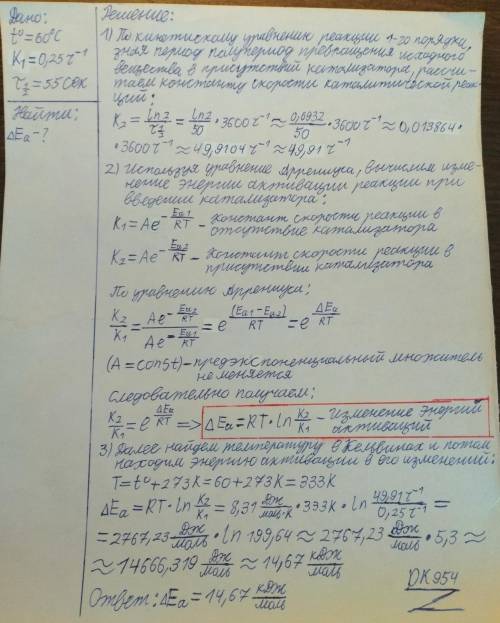 Дано:
t°=60°C
K₁=0,25 ч⁻¹
τ½=55 сек
Найти:
ΔEa-?
Решение:
1) По кинетискому уравнению реакции 1-го порядка,
зная период полупериод превращения исходного
вещества в присутствий катализатора, рассчи-
таем константу скорости каталитической реак-
ций:
K₂=ln2/τ½=ln2/50·3600ч⁻¹≈0,6932/50·3600ч⁻¹≈0,013864·
·3600ч⁻¹≈49,9104ч⁻¹≈49,91ч⁻¹
2) Используя уравнение Аррениуса, вычислим изме-
нение энергии активации реакции при
введении катализатора:
K₁=Ae^(-Ea₁/RT) - констант скорости реакции в
отсутствие катализатора
K₂=Ae^(-Ea₂/RT) - констант скорости реакции в
присутствии катализатора
По уравнению Аррениуса:
K₂/K₁=Ae^(-Ea₂/RT)/Ae^(-Ea₁/RT)=e^((Ea₁-Ea₂)/RT)=e^(ΔEa/RT)
(A=const)-предэкспоненциальный множитель
не меняется
Следовательно получаем:
K₂/K₁=e^(ΔEa/RT) => ΔEa=RT·ln K₂/K₁ - изменение энергий
активаций
3) Далее найдем температуру в Кельвинах и потом
находим энергию активации в его изменений:
T=t°+273K=60+273K=333K
ΔEa=RT·ln K₂/K₁=8,31 Дж/моль·К·333K·ln 49,91ч⁻¹/0,25ч⁻¹=
=2767,23 Дж/моль·ln 199,64≈2767,23 Дж/моль·5,3≈
≈14666,319 Дж/моль≈14,67 кДж/моль
Ответ: ΔEa=14,67 кДж/моль
DK954